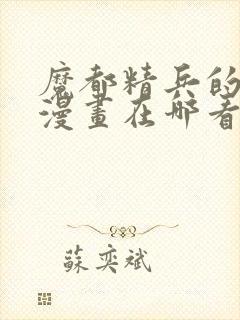 魔都精兵的
漫畫在哪看
蘇奕斌